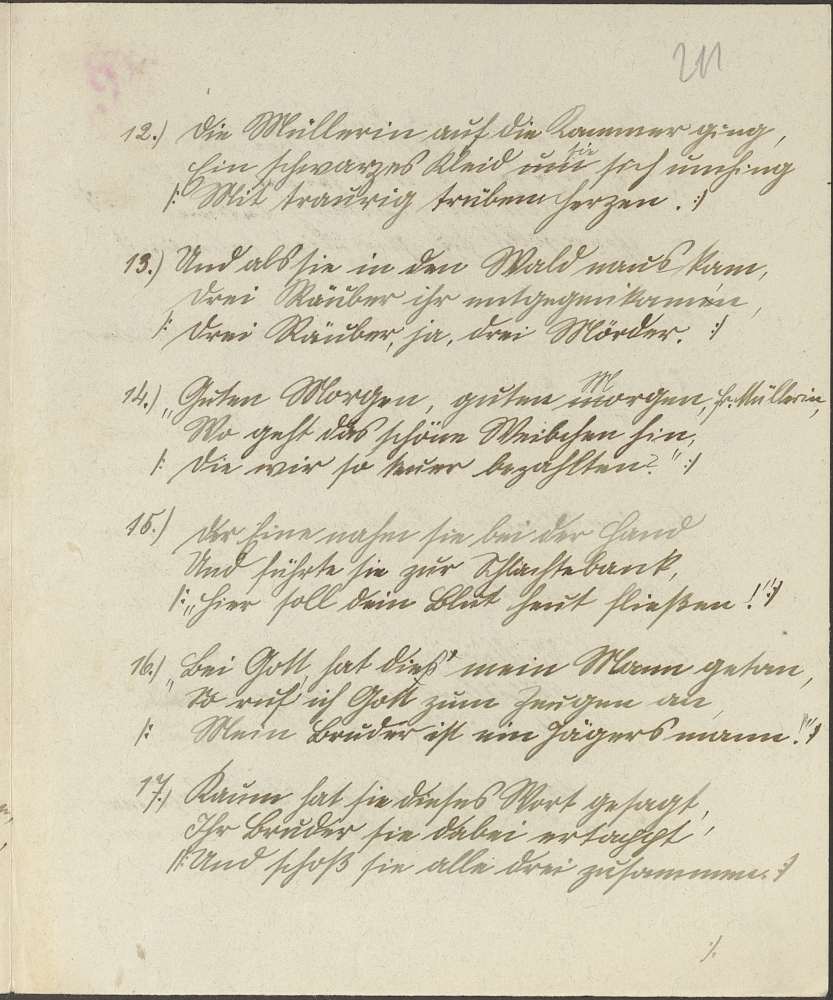 211
12.) Die Müllerin auf die Kammer ging,
Ein schwarzes Kleid um sie sich umhing
/: Mit traurig trübem Herzen. :/
13.) Und als sie in den Wald naus kam,
Drei Räuber ihr entgegenkamen,
/: Drei Räuber, ja, drei Mörder. :/
14.) „Guten Morgen, guten Morgen, Fr. Müllerin,
Wo geht das schöne Weibchen hin,
/: Die wir so teuer bezahlten?" :/
15.) Der Eine nahm sie bei der Hand
Und führte sie zur Schlachtebank,
/: „Hier soll dein Blut heut fließen!" :/
16.) „Bei Gott, hat dies mein Mann getan,
So ruf ich Gott zum Zeugen an,
/: Mein Bruder ist ein Jägersmann!" :/
17.) Kaum hat sie dieses Wort gesagt,
Ihr Bruder sie dabei ertappt,
/: Und schoß sie alle drei zusammen. :/
./.